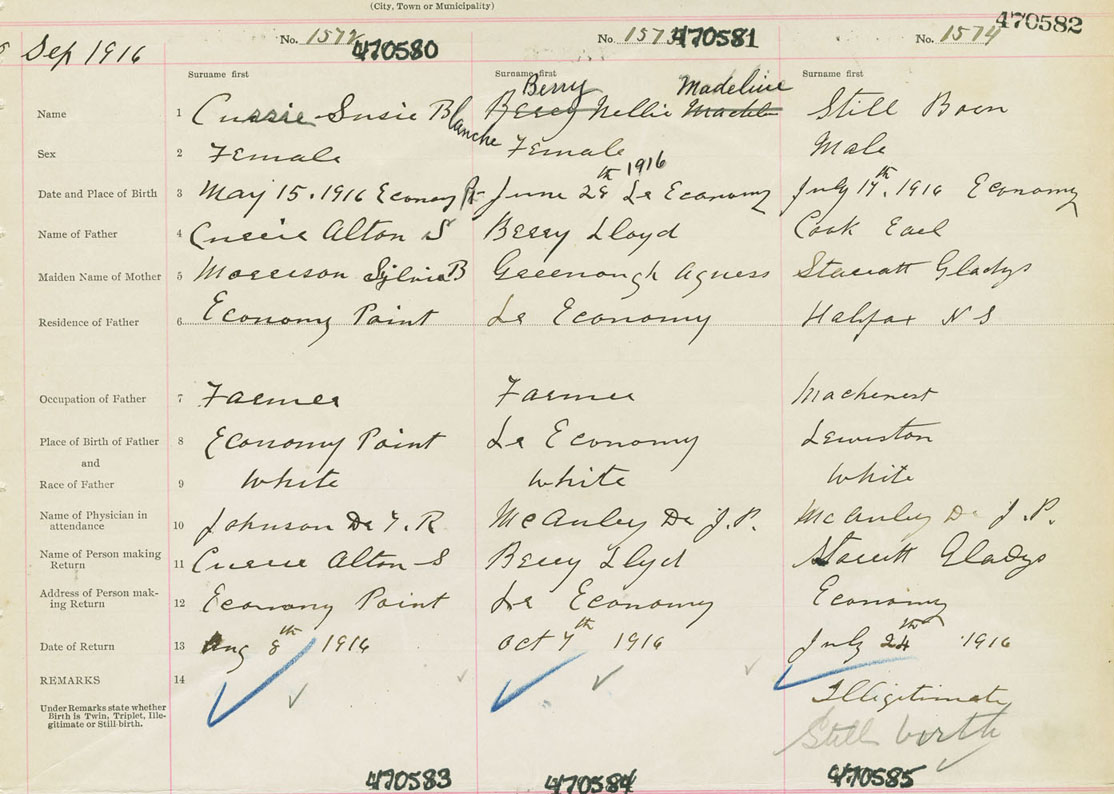 (City, Town or Municipality)
Sep 1916
No. 1572 470580
No. 1573 470581
No. 1574 470582
Surname first
Surname first
Surname first
Name 1 Currie Susie Blanche
Berry Berry Nellie Madeline
Still Born
Sex 2 Female
Female
Male
Date and Place of Birth 3 May 15. 1916 Economy Pt
June 28th 1916 Lr Economy
July 17th. 1916 Economy
Name of Father 4 Currie Alton S
Berry Lloyd
Cook Earl
Maiden Name of Mother 5 Morrison Sylvia B
Greenough Agness
Starratt Gladys
Residence of Father 6 Economy Point
Lr Economy
Halifax N S
Occupation of Father 7 Farmer
Farmer
Machenest
Place of Birth of Father 8 Economy Point
Lr Economy
Lewiston
and
Race of Father 9 White
White
White
Name of Physician in attendance 10 Johnson Dr T. R
McAuley Dr J. P.
McAuley Dr J. P.
Name of Person making Return 11 Currie Alton S
Berry Llyd
Starrtt Gladys
Address of Person making Return 12 Economy Point
Lr Economy
Economy
Date of Return 13 Aug 8th 1916
Oct 7th 1916
July 24th 1916
REMARKS 14
Illigitimate
Under Remarks state whether
Birth is Twin, Triplet, Ille-
gitimate or Still-birth.
Still birth
470583
470584
470585